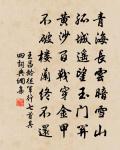 青海長雲暗雪山
孤城遙望玉門關
黃沙百戰穿金甲
不破樓蘭終不還
王昌齡從軍行七首其
四